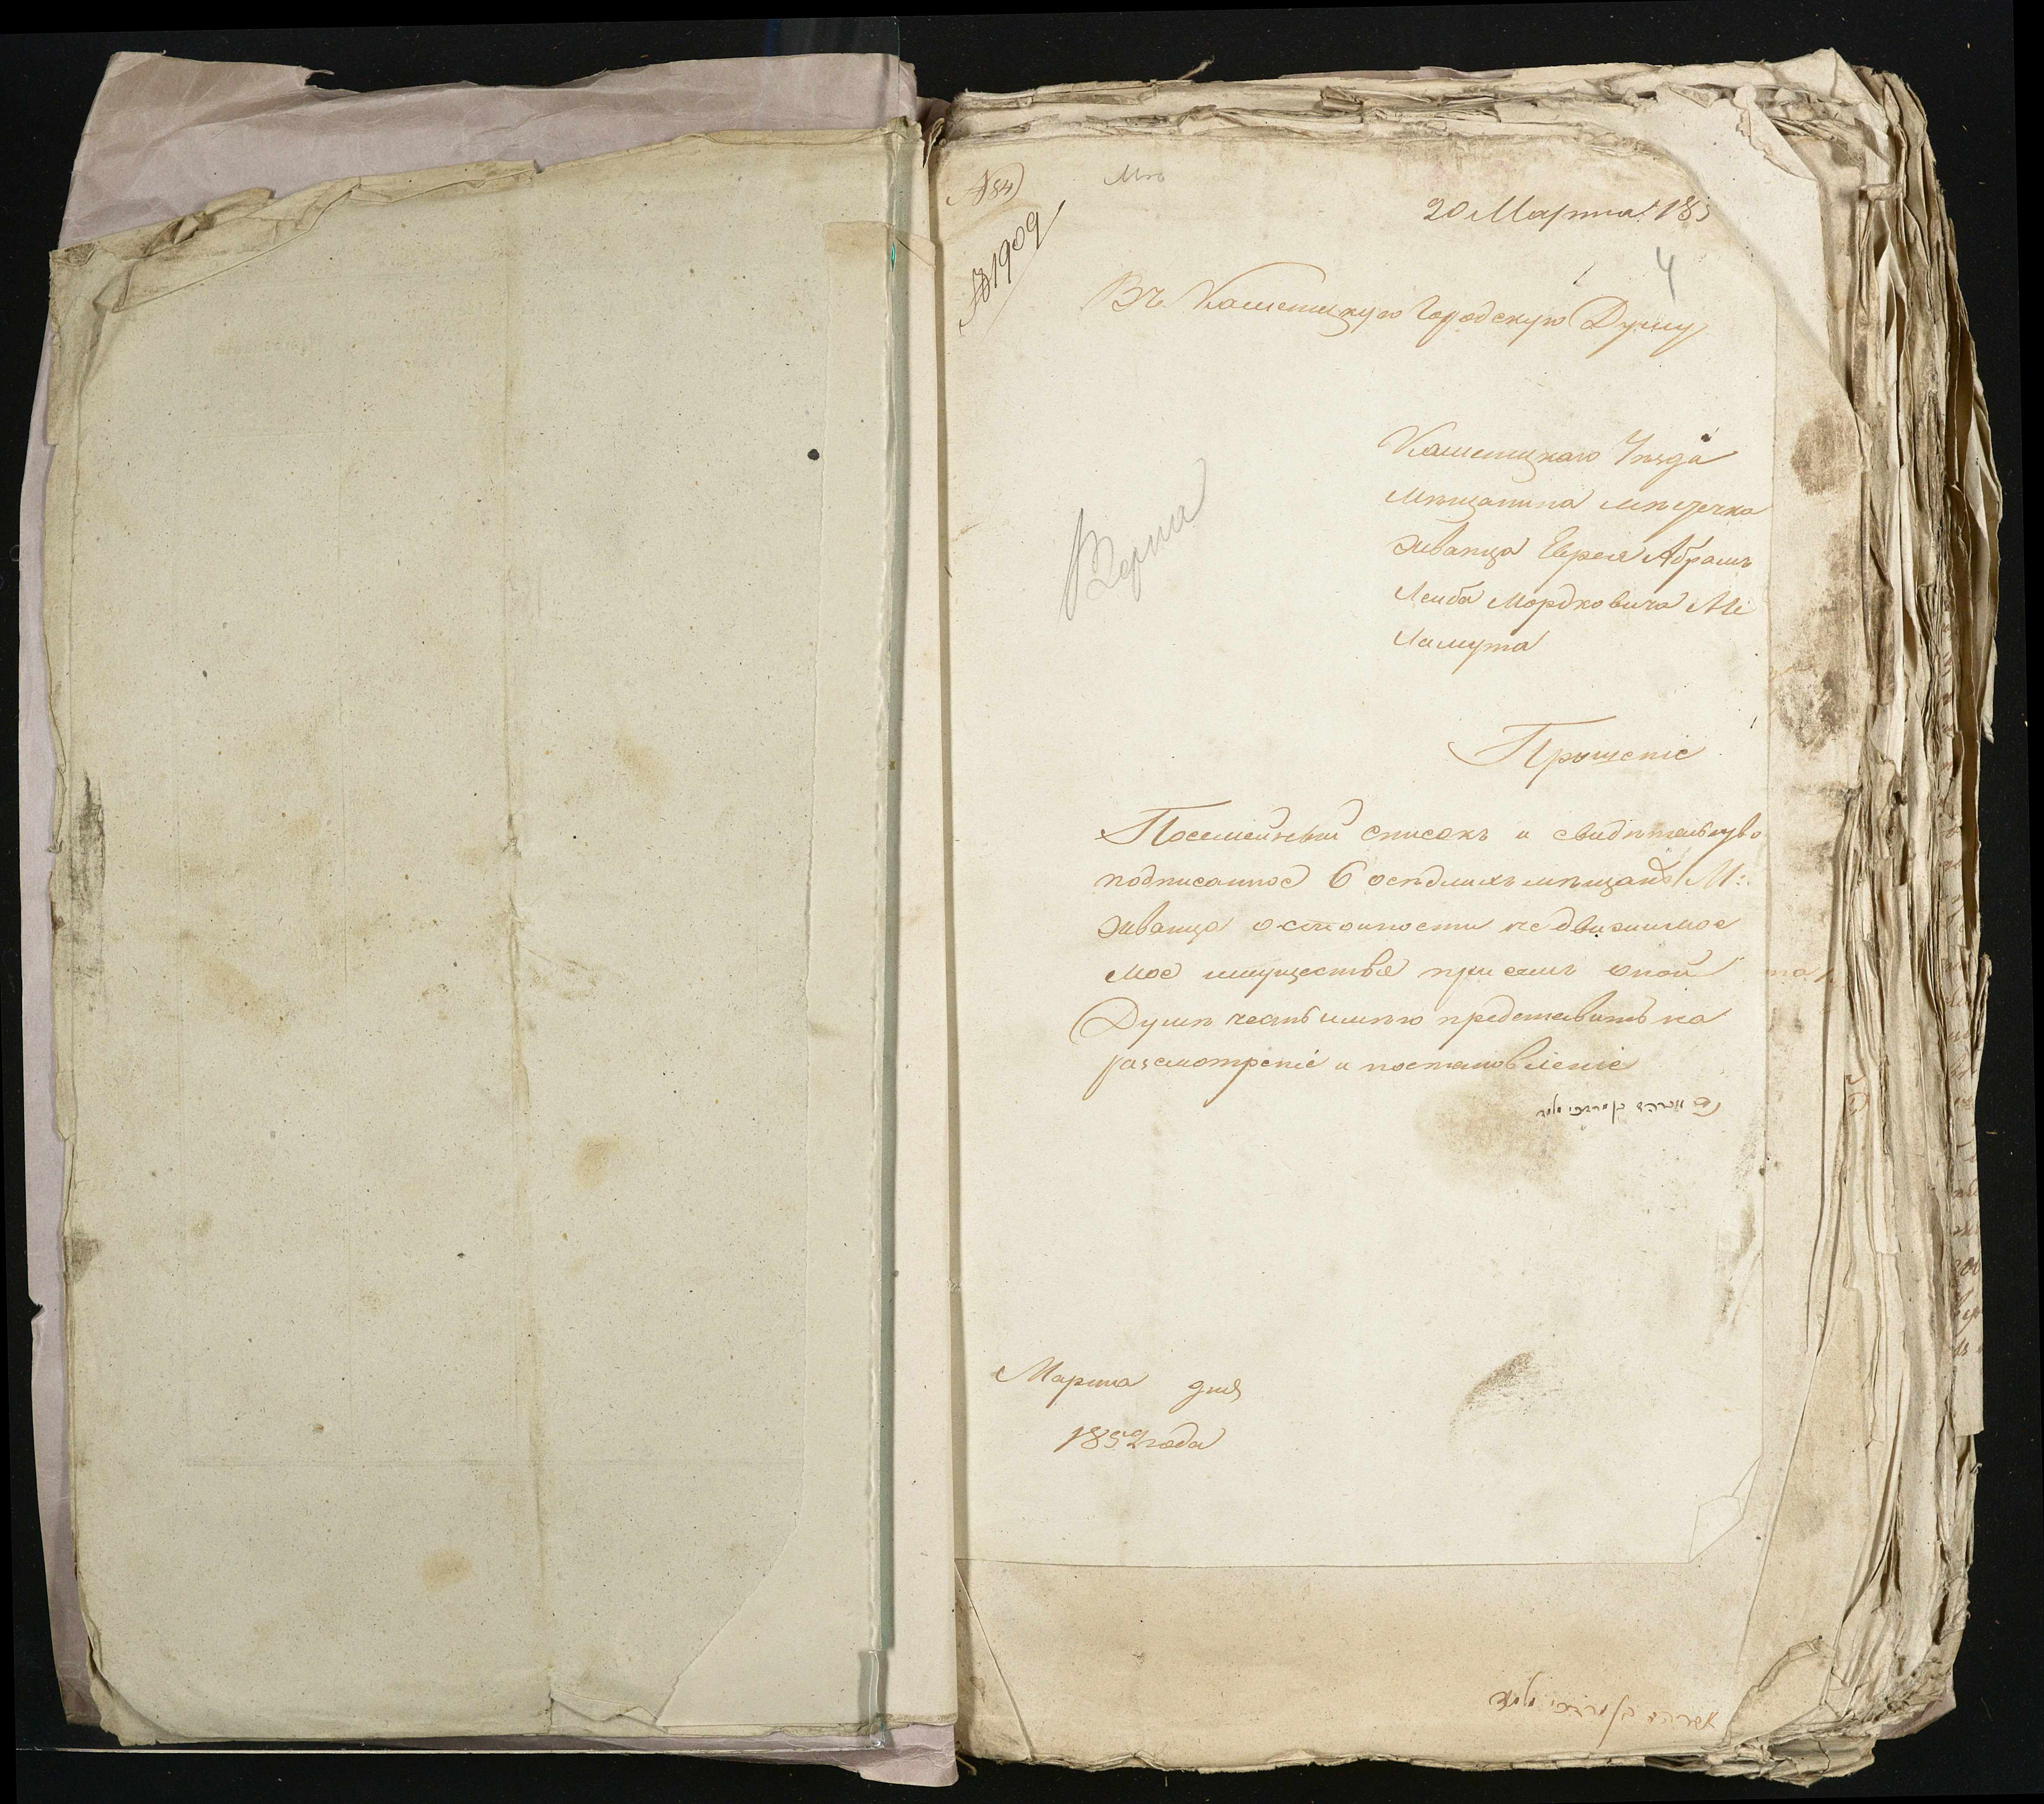 № 84
20 Марта 185
№ 1909
4
Въ Каменецкую Городскую Думу
Каменецкаго Уезда
мещанина местечка
Жванца Еврея Абрамъ
Лейба Мордковича Ме
ламута
Прошеніе
Посемейный списокъ и свидетельство
подписанное 6 оседлихъ мещанъ М:
Жванца о стоимости недвижимое
мое имущества при семъ оной
Думе честь имею представить на
разсмотреніе и постановленіе
Марта дня
1852 года